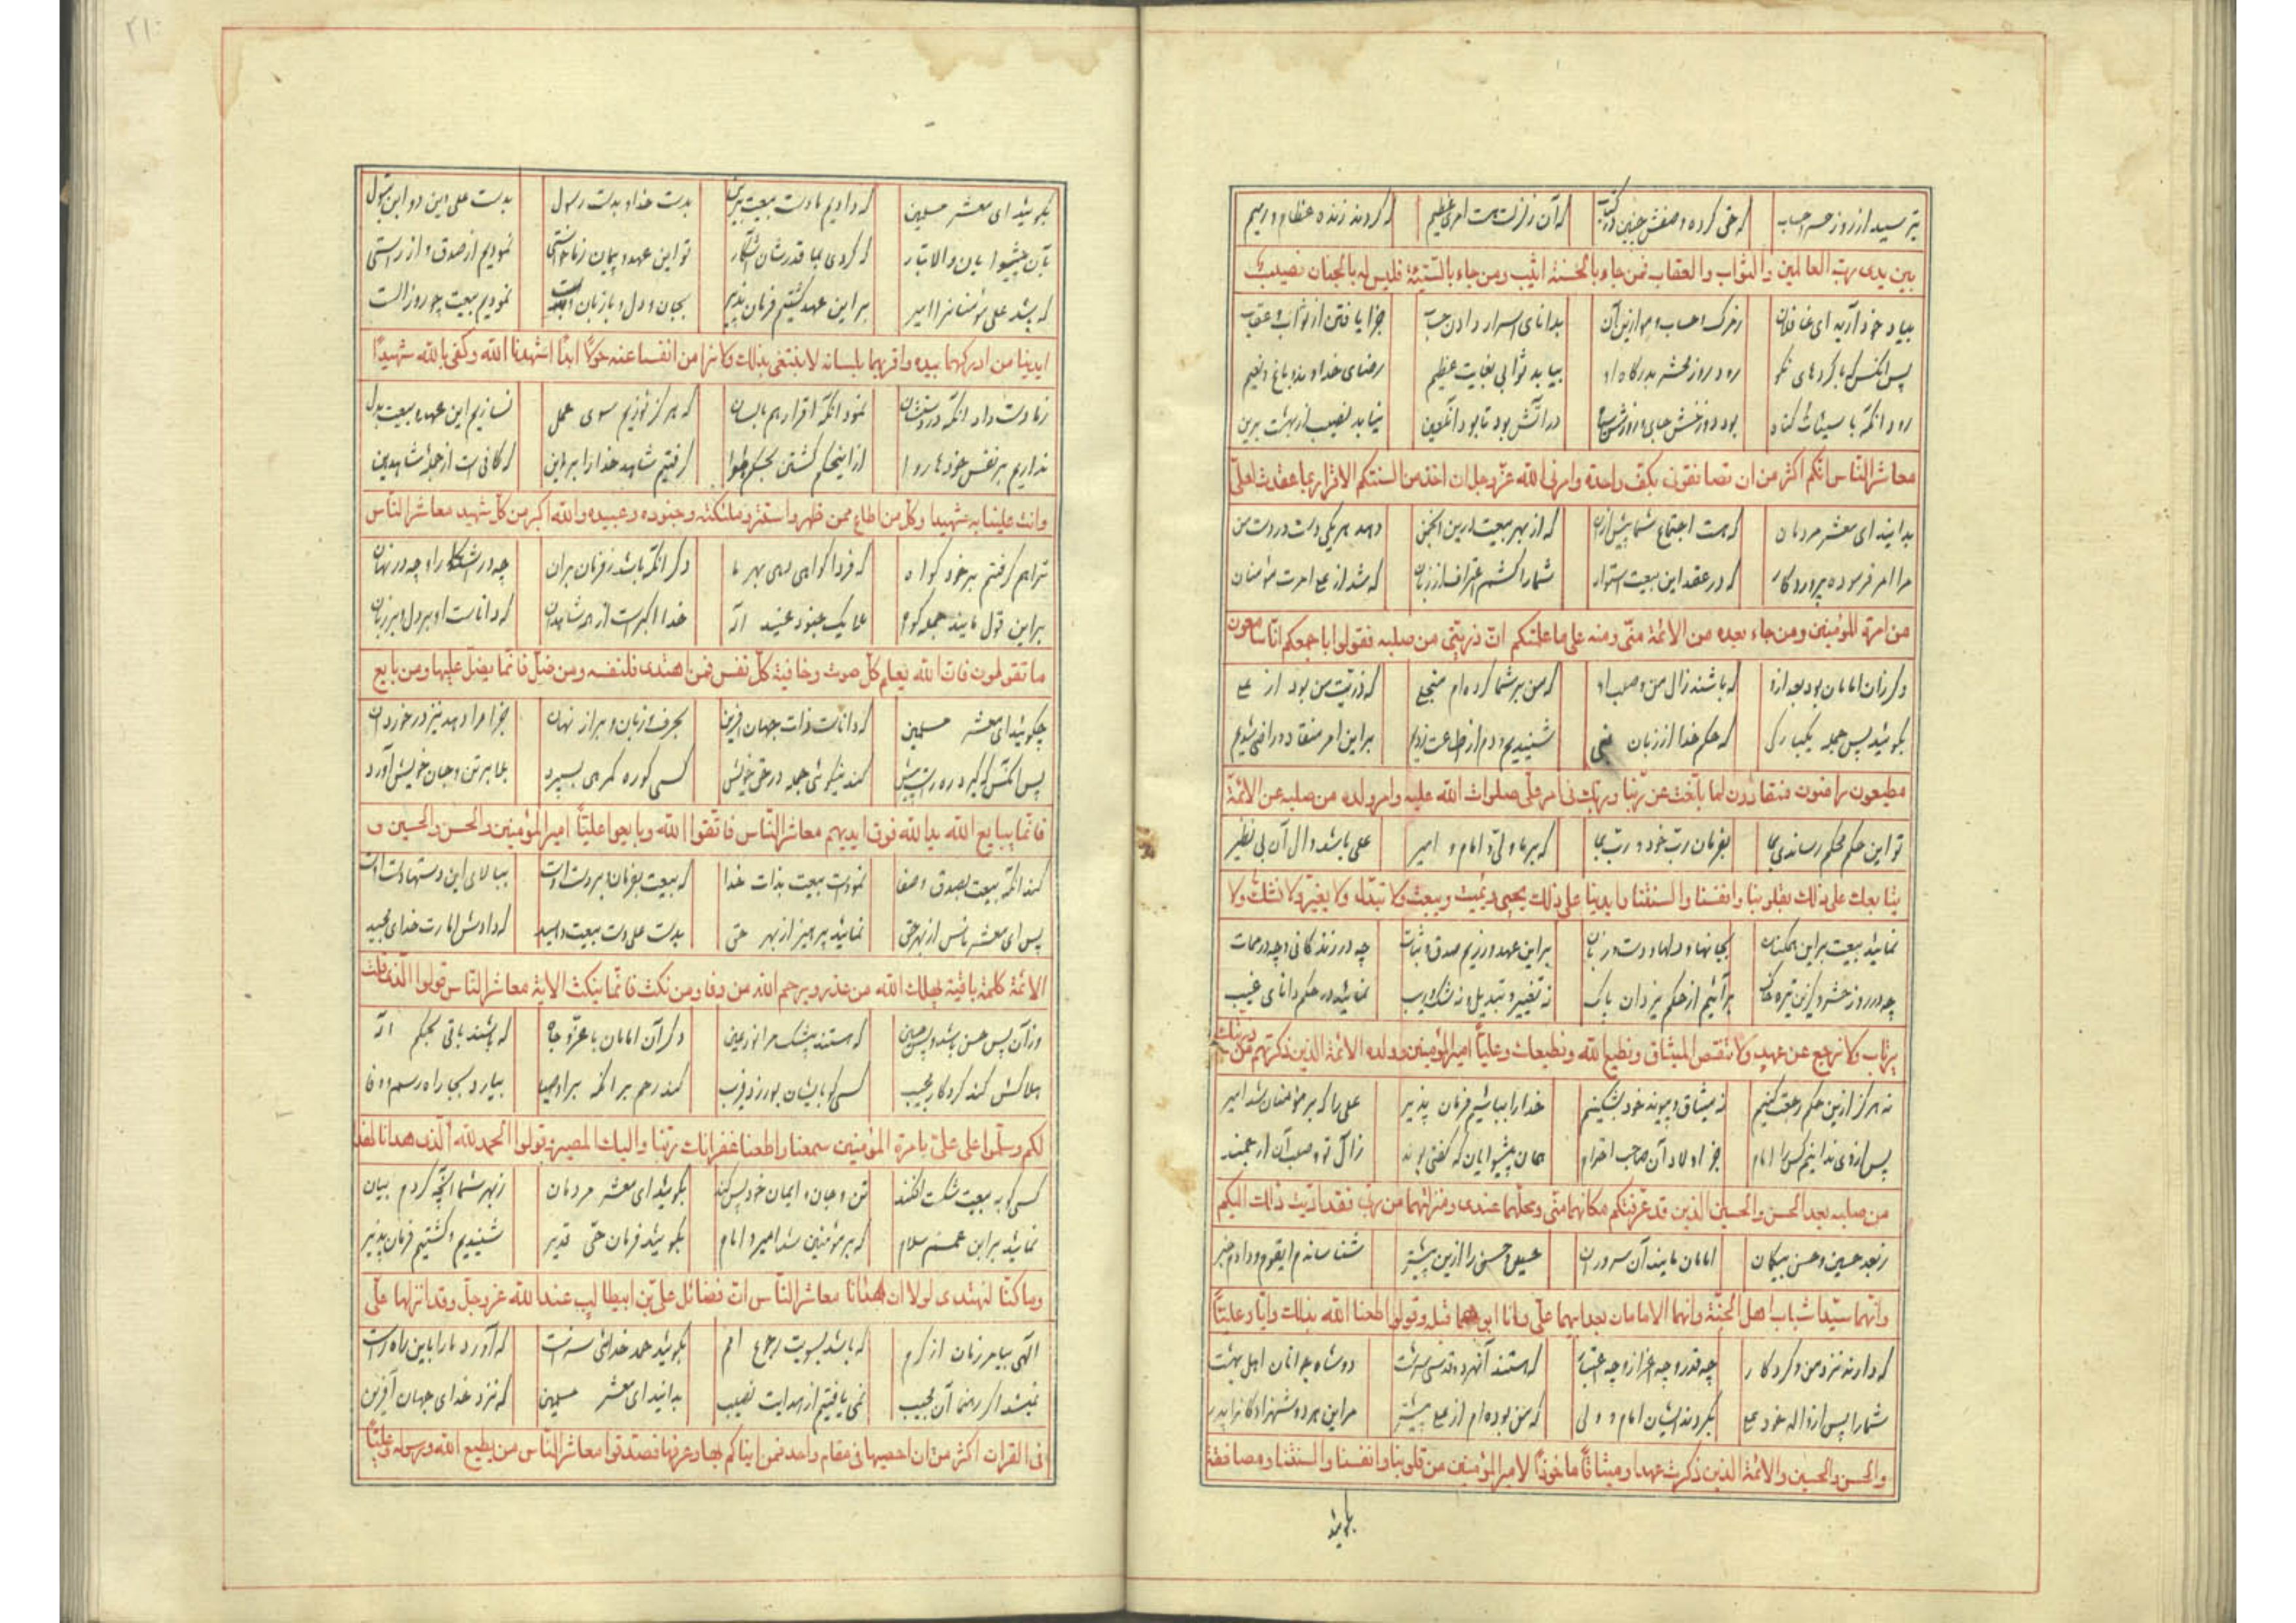 بترسید از روز حشر و حساب که حق کرده وصفش چنین در کتاب که آن زلزلت هست امری عظیم که گردند زنده عظام و رمیم
بین یدی رب العالمین والثواب والعقاب فمن جاء بالحسنة اثیب ومن جاء بالسیئة فلیس له بالجنان نصیب
بیاد خود آرید ای غافلان ز مرگ و حساب و موازین آن بدانای اسرار دادن حساب جزا یافتن از ثواب و عقاب
پس انکس که با کردهای نکو رود روز محشر بدرگاه او بیابد ثوابی بغایت عظیم رضای خداوند و باغ نعیم
رود آنکه با سیئات گناه بود دوزخش جای و روزش سیاه در آتش بود تا بود آنچنین نیابد نصیب از بهشت برین
معاشر الناس انکم اکثر من ان تصافقونی بکف واحدة وامرنی الله عز وجل ان اخذ من السنتکم الاقرار بما عقدت لعلی
بدانید ای معشر مردمان که هست اجتماع شما بیش از آن که از بهر بیعت درین انجمن دهد هر یکی دست در دست من
مرا امر فرموده پروردگار که در عقد این بیعت استوار شما را کشم اعتراف از زبان که شد از علی امرت مؤمنان
من امرة المؤمنین ومن جاء بعده من الائمة منی ومنه علی ما علمتکم ان ذریتی من صلبه فقولوا باجمعکم انا سامعون
دگر زان امامان بود بعد ازو که باشند زال من و صلب او که من بر شما کرده‌ام منجلی که ذریت من بود از علی
بگوئید پس جمله یکبارگی که حکم خدا از زبان نبی شنیدیم و دم از طاعت زدیم بر این امر منقاد و راضی شدیم
مطیعون راضون منقادون لما بلغت عن ربنا وربک فی امر علی صلوات الله علیه وامر ولده من صلبه من الائمة
تو این حکم محکم رساندی بما بفرمان رب خود و رب ما که بر ما ولی و امام و امیر علی باشد و ال آن بی نظیر
نبایعک علی ذلک بقلوبنا وانفسنا والسنتنا وایدینا علی ذلک نحیی ونمیت ونبعث ولا نبدل ولا نغیر ولا نشک ولا
نمائید بیعت بر این همکنان بجانها و دلها و دست و زبان بر این عهد ورزیم صدق و ثبات چه در زندگانی و چه در ممات
چه در روز حشر و کزین تیره خاک برآئیم از حکم یزدان پاک نه تغییر و تبدیل و نه شک و ریب نمائید در حکم دانای غیب
نرتاب ولا نرجع عن عهد ولا ننقض المیثاق ونطیع الله ونطیعک وعلیا امیر المؤمنین وولده الائمة الذین ذکرتهم من ذریتک
نه هرگز ازین حکم رجعت کنیم نه میثاق و پیوند خود بشکنیم خدا را بباشیم فرمان پذیر علی را که بر مؤمنان شد امیر
پس از وی ندانیم کس را امام جز اولاد آن صاحب احترام همان پیشوایان که گفتی بوند زال تو و صلب آن ارجمند
من صلبه بعد الحسن والحسین الذین قد عرفتکم مکانهما منی ومحلهما عندی ومنزلتهما من ربی فقد ادیت ذلک الیکم
ز بعد حسین و حسن بیگمان امامان مایند آن سروران حسین و حسن را ازین پیشتر شناساندم ایقوم و دادم خبر
وانهما سیدا شباب اهل الجنة وانهما الامامان بعد ابیهما علی وانا ابوهما قبله وقولوا اطعنا الله بذلک وایاک وعلیا
که دارند نزد من و کردگار چه قدر و چه اعزاز و چه اعتبار که هستند آنهر دو قدسی سرشت دو شاه جوانان اهل بهشت
شما را پس از والد خود علی بگردند ایشان امام و ولی که من بوده‌ام از علی پیشتر مر این هر دو شهزادگانرا پدر
والحسن والحسین والائمة الذین ذکرت عهدا ومیثاقا ماخوذا لامیر المؤمنین من قلوبنا وانفسنا والسنتنا ومصافقة
بگوئید
۲۱۰
بگوئید ای معشر مسلمین که دادیم ما دست بیعت برین بدست خدا و بدست رسول بدست علی و این دو ابن بتول
بآن پیشوایان والاتبار که کردی بما قدرشان آشکار تو این عهد و پیمان زما خواستی نمودیم از صدق و از راستی
که باشد علی مؤمنانرا امیر بر این عهد گشتیم فرمان پذیر بجان و دل و با زبان و بدست نمودیم بیعت چو روز الست
ایدینا من ادرکهما بیده واقر بهما بلسانه لا نبتغی بذلک ولا نرا من انفسنا عنه حولا ابدا اشهدنا الله وکفی بالله شهیدا
زما دست داد انکه در دستشان نمود انکه اقرار هم با لسان که هرگز نپوئیم سوی عمل نسازیم این عهد و بیعت بدل
نداریم بر نفس خود ها روا از اینحکم گشتن بحکم هوا گرفتیم شاهد خدا را بر این که کافی است از جمله شاهدین
وانت علینا به شهید وکل من اطاع ممن ظهر واستتر وملئکته وجنوده وعبیده والله اکبر من کل شهید معاشر الناس
ترا هم گرفتیم بر خود گواه که فردا گواهی دهی بهر ما دگر انکه باشد ز فرمان بران چه در آشکارا و چه در نهان
بر این قول مایند جمله گواه ملایک جنود عبید اله خدا اکبر است از همه شاهدان که داناست او بر دل و بر زبان
ما تقولون فان الله یعلم کل صوت وخافیة کل نفس فمن اهتدی فلنفسه ومن ضل فانما یضل علیها ومن بایع
چگوئید ای معشر مسلمین که دانا است ذات جهان آفرین بحرف و زبان و براز نهان جزا مر او دهد نیز در خورد آن
پس انکس که گیرد ره راست پیش کند نیکوئی جمله در حق خویش کسی کو ره گمرهی بسپرد بلا بر تن و جان خویش آورد
فانما یبایع الله ید الله فوق ایدیهم معاشر الناس فاتقوا الله وبایعوا علیا امیر المؤمنین والحسن والحسین و
کند انکه بیعت بصدق و صفا نمودست بیعت بذات خدا که بیعت بفرمان بر دست اوست ببالای این دستها دست اوست
پس ای معشر ناس از بهر حق نمائید پرهیز از بهر حق بدست علی دست بیعت دهید که دادش امارت خدای مجید
الائمة کلمة باقیة یهلک الله من غدر ویرحم الله من وفا ومن نکث فانما ینکث الایة معاشر الناس قولوا الذی قلت
وز آن پس حسن باشد و پس حسین که هستند بیشک مرا نور عین دگر آن امامان با عز و جاه که باشند باقی بحکم اله
هلاکش کند کردگار مجیب کسی کو بایشان بورزد فریب کند رحم بر انکه بر او وفا بیارد بجا راه و رسم وفا
لکم وسلموا علی علی بامرة المؤمنین سمعنا واطعنا غفرانک ربنا والیک المصیر وقولوا الحمد لله الذی هدانا لهذا
کسی کو به بیعت شکست افکند تن و جان و ایمان خود بشکند بگوئید ای معشر مردمان ز بهر شما آنچه کردم بیان
نمائید بر ابن عمم سلام که بر مؤمنین شد امیر و امام بگوئید فرمان حی قدیر شنیدیم و گشتیم فرمان پذیر
وما کنا لنهتدی لولا ان هدانا معاشر الناس ان فضائل علی بن ابیطالب عند الله عز وجل وقد انزلها علی
الهی بیامرزمان از کرم که باشد بسویت رجوع امم بگوئید حمد خدائی سزاست که آورد ما را باین راه راست
نمیشد اگر رهنما آن مجیب نمی یافتیم از هدایت نصیب بدانید ای معشر مسلمین که نزد خدای جهان آفرین
فی القران اکثر من ان احصیها فی مقام واحد فمن انباکم بها وعرفها فصدقوا معاشر الناس من یطیع الله ورسوله وعلیا